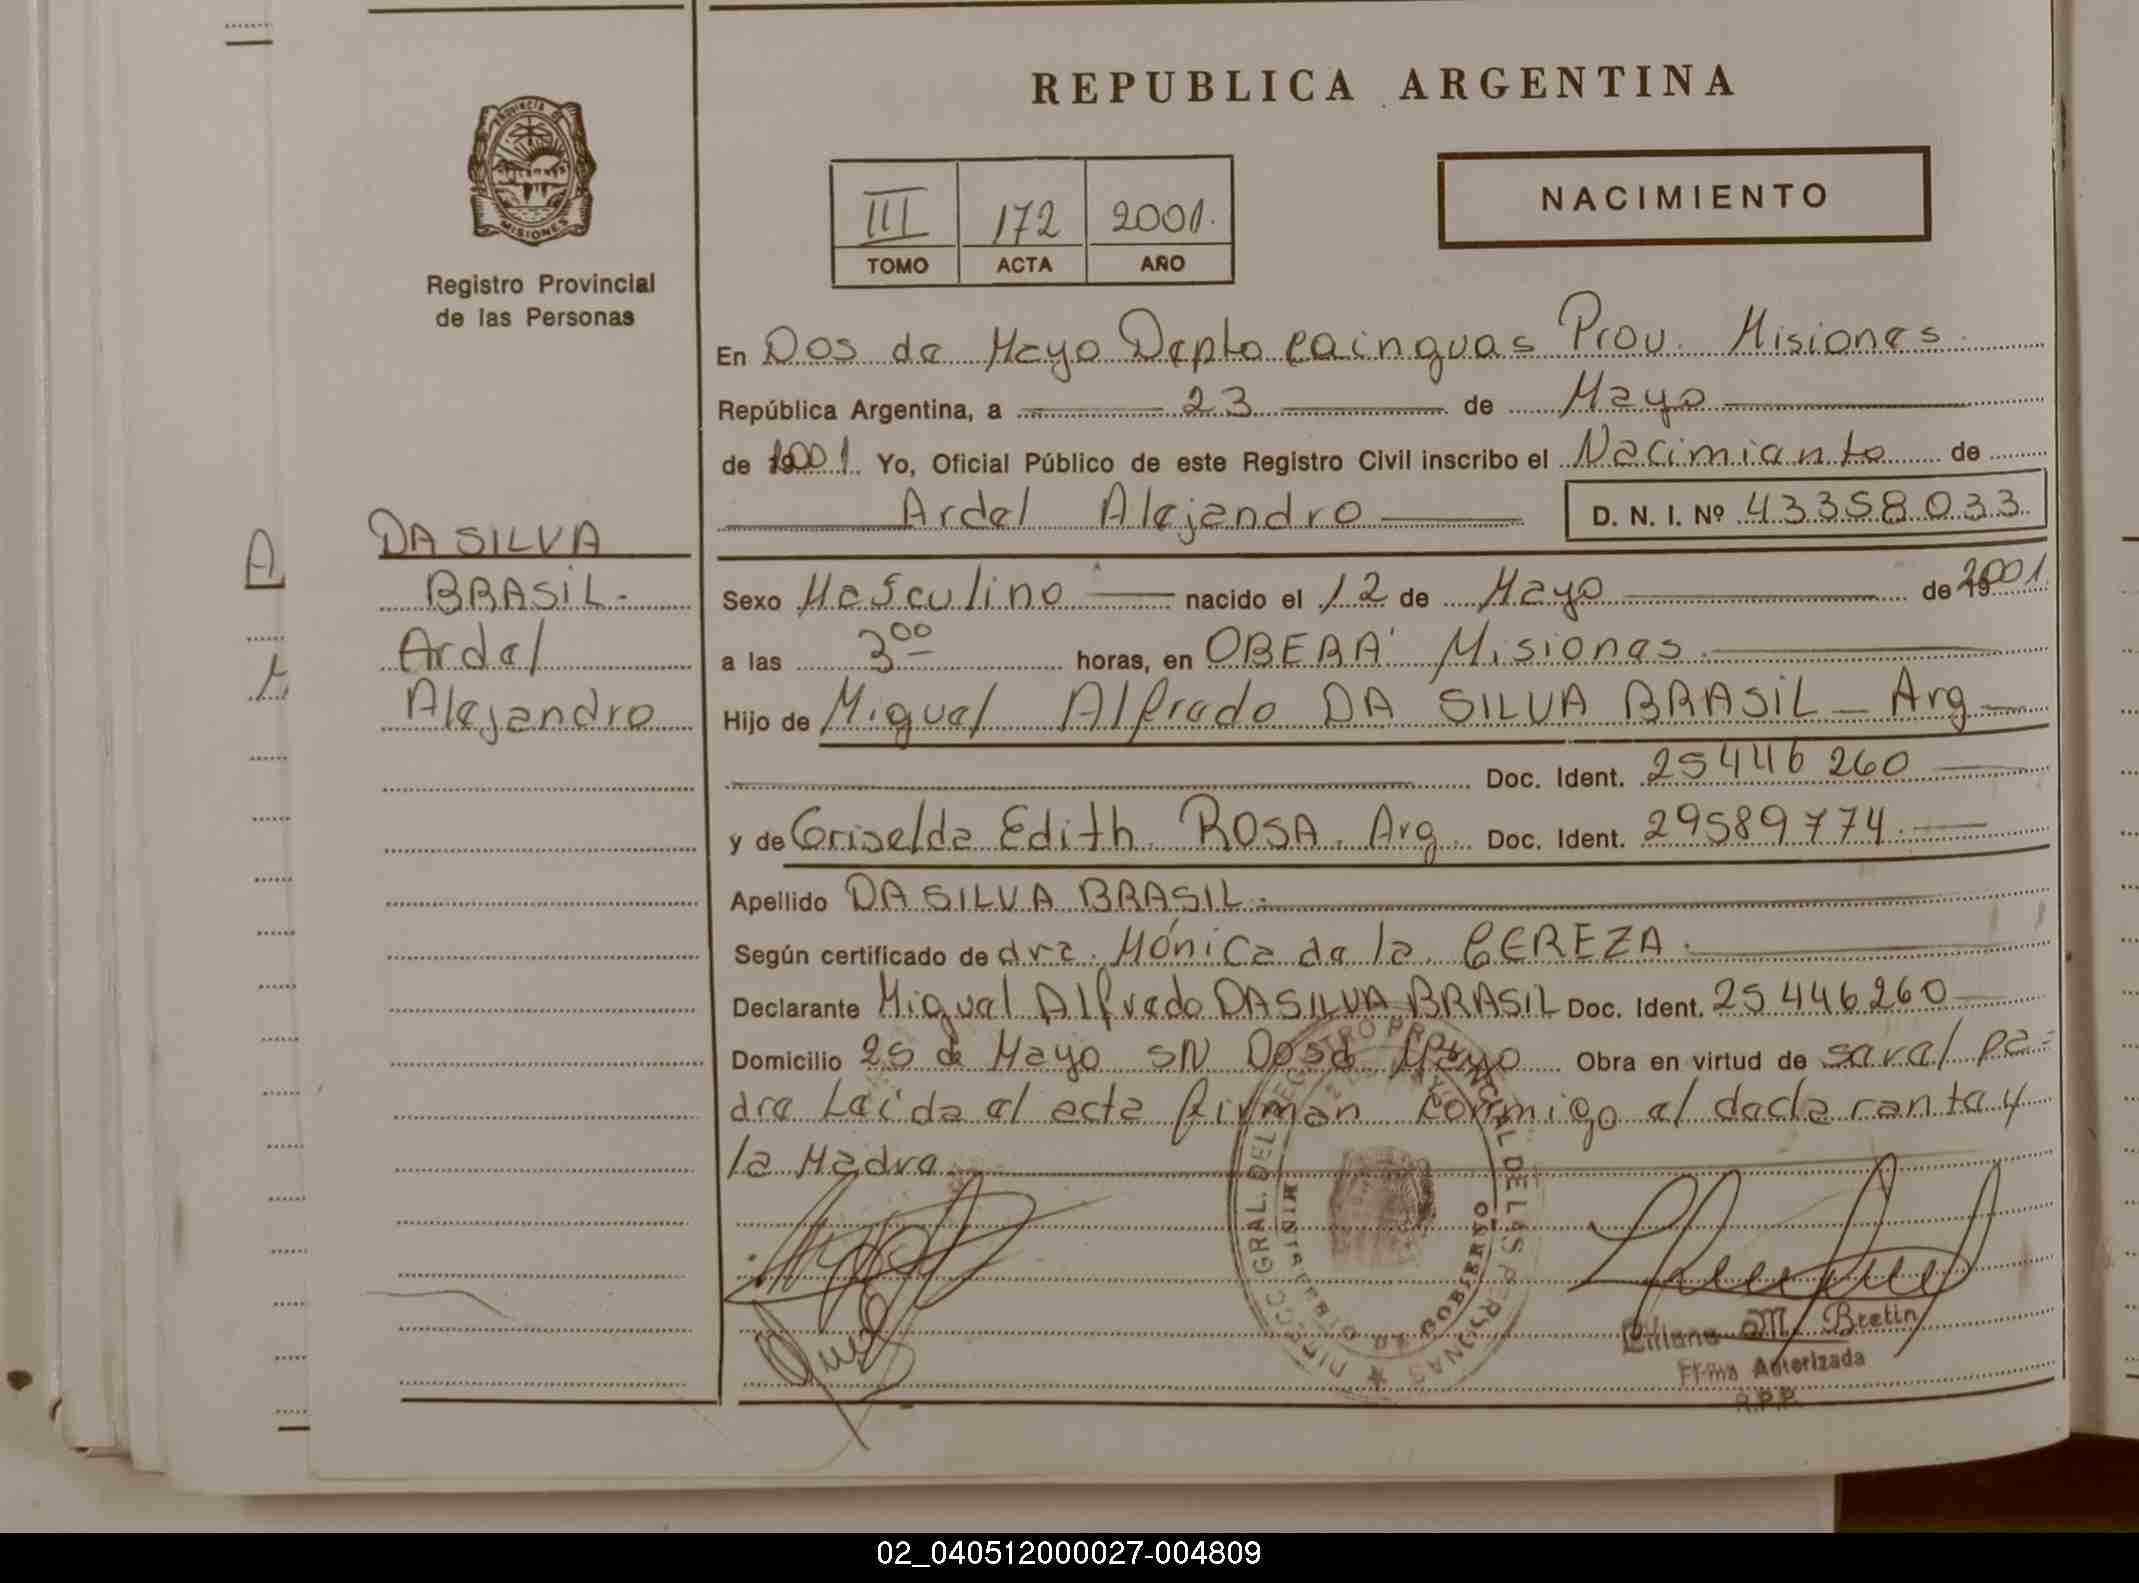 REPUBLICA ARGENTINA
PROVINCIA DE MISIONES
Registro Provincial
de las Personas
III 172 2001.
TOMO ACTA AÑO
NACIMIENTO
En Dos de Mayo Depto Cainguas Prov. Misiones.
República Argentina, a 23 de Mayo
de 2001. Yo, Oficial Público de este Registro Civil inscribo el Nacimiento de
Ardel Alejandro D. N. I. Nº 43358033
DA SILVA
BRASIL.-
Ardel
Alejandro
A
Sexo Masculino nacido el 12 de Mayo de 2001.
a las 3 00 horas, en OBERA' Misiones.
Hijo de Miguel Alfredo DA SILVA BRASIL - Arg -
Doc. Ident. 25446 260
y de Griselda Edith ROSA. Arg. Doc. Ident. 29589774.
Apellido DA SILVA BRASIL.-
Según certificado de dra. Mónica de la CEREZA.
Declarante Miguel Alfredo DA SILVA BRASIL Doc. Ident. 25 446260
Domicilio 25 de Mayo SN Dos de Mayo Obra en virtud de ser el pa=
dre Leida el acta firman conmigo el declarante y
la Madre
DIRECC. GRAL. DEL REGISTRO PROVINCIAL DE LAS PERSONAS
MINISTERIO DE GOBIERNO
M. Bretin
Firma Autorizada
R.P.P.
02_040512000027-004809